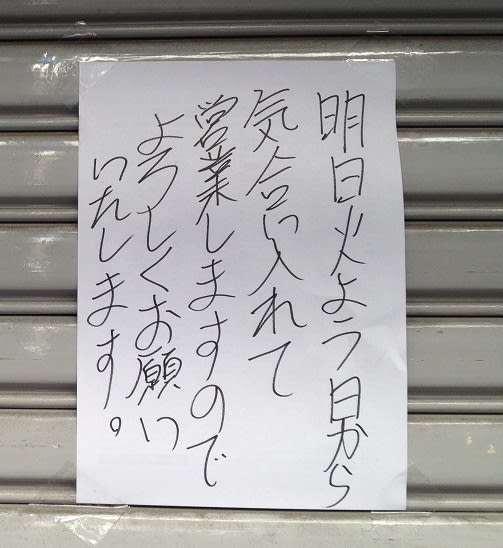 明日火よう日から
気合い入れて
営業しますので
よろしくお願い
いたします。